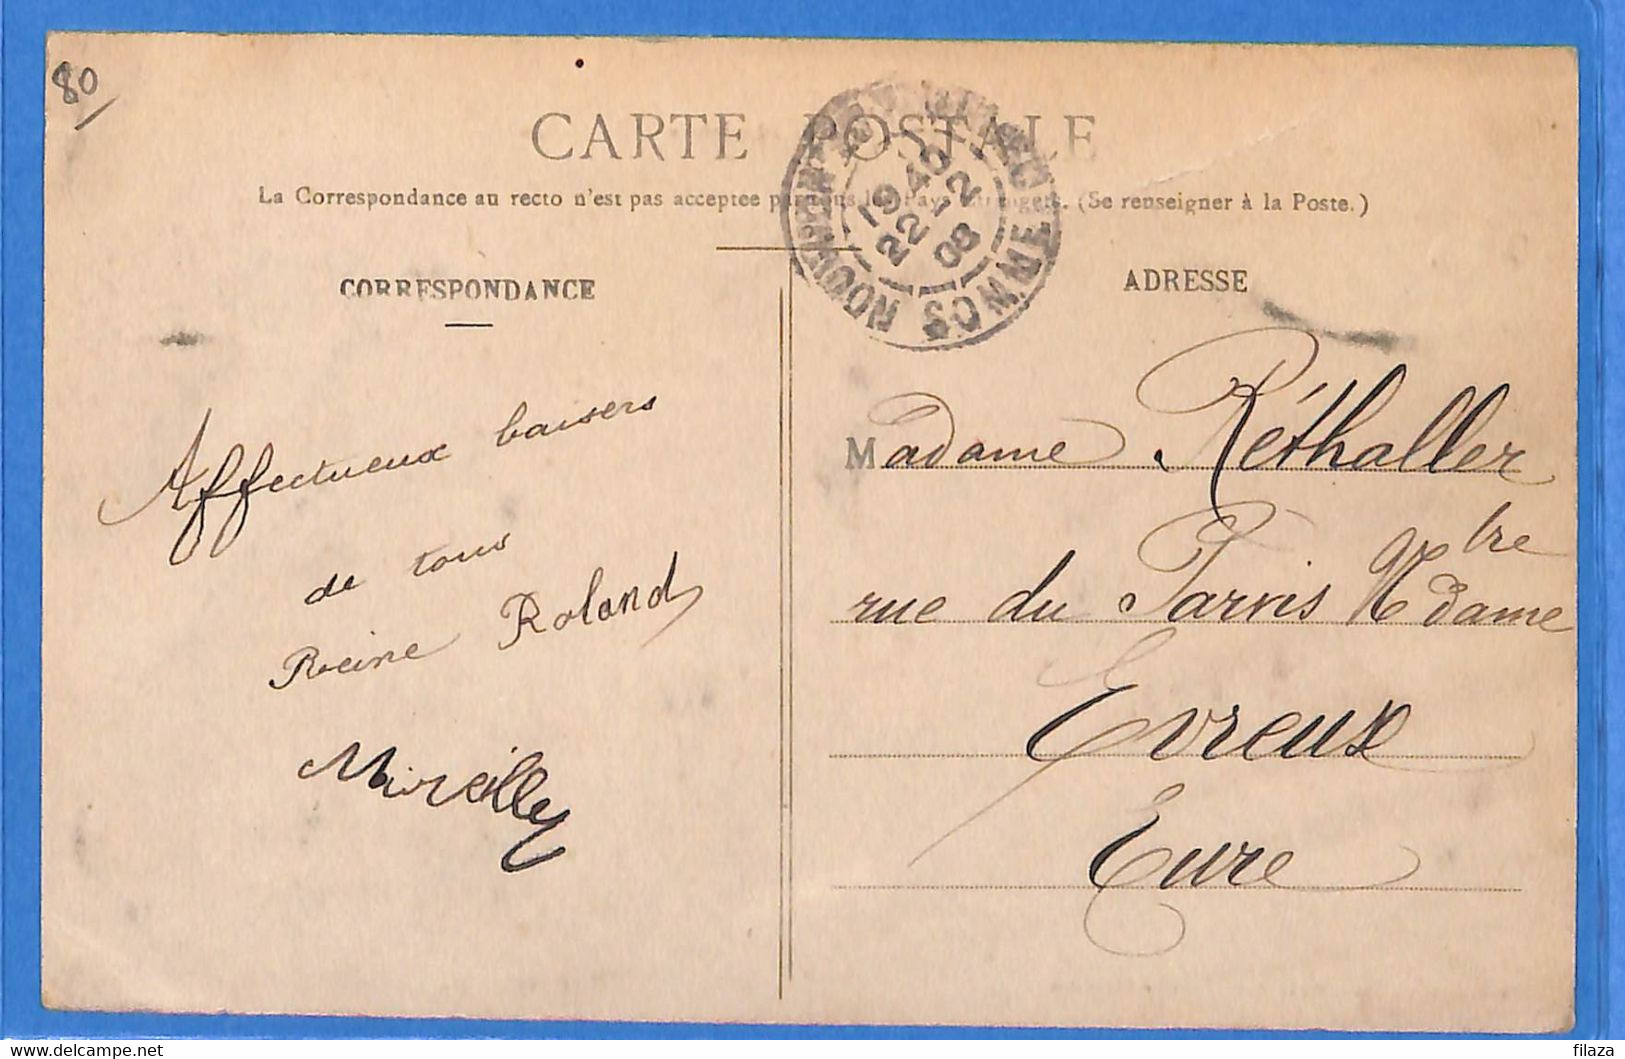 80
CARTE POSTALE
La Correspondance au recto n'est pas acceptee par tous les Pays Etrangers. (Se renseigner à la Poste.)
19 40
22 - 12
08
SOMME
CORRESPONDANCE
Affectueux baisers
de tous
Reine Roland
Mireilley
ADRESSE
Madame Réthaller
rue du Parvis Ntre Dame
Evreux
Eure
www.delcampe.net
filaza